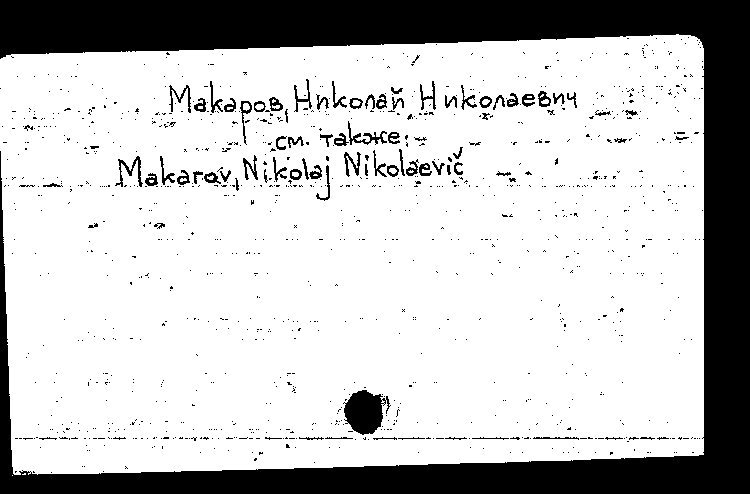 Макаров, Николай Николаевич
см. также:
Makarov, Nikolaj Nikolaevič